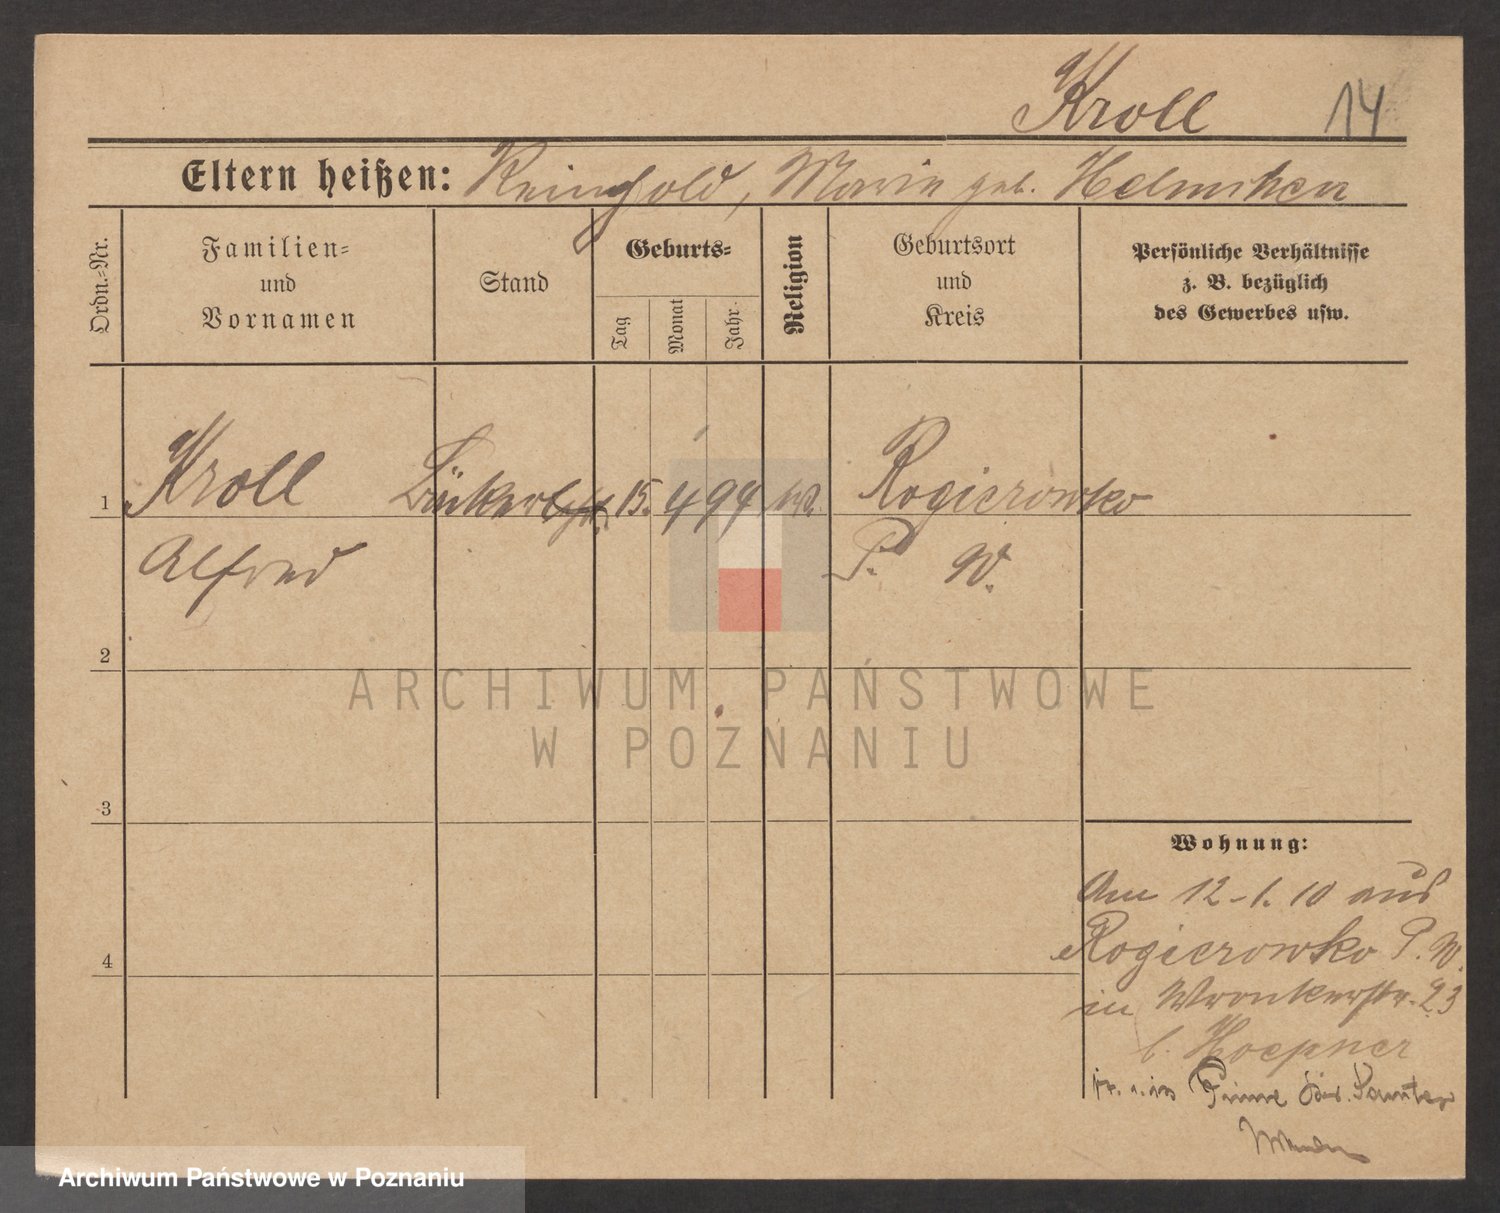 Kroll 14
Eltern heißen: Reinhold, Marie geb. Helmchen
Ordn.=Nr.
Familien=
und
Vornamen
Stand
Geburts=
Tag
Monat
Jahr.
Religion
Geburtsort
und
Kreis
Persönliche Verhältnisse
z. B. bezüglich
des Gewerbes usw.
1 Kroll 15. 4 94 Rogierowko
Alfred P. W.
2
ARCHIWUM PAŃSTWOWE
W POZNANIU
3
Wohnung:
Am 12-1.10 aus
Rogierowko P. W.
4
in Wronkerstr. 23
b. Hoepner
in Pinne Samter
Archiwum Państwowe w Poznaniu